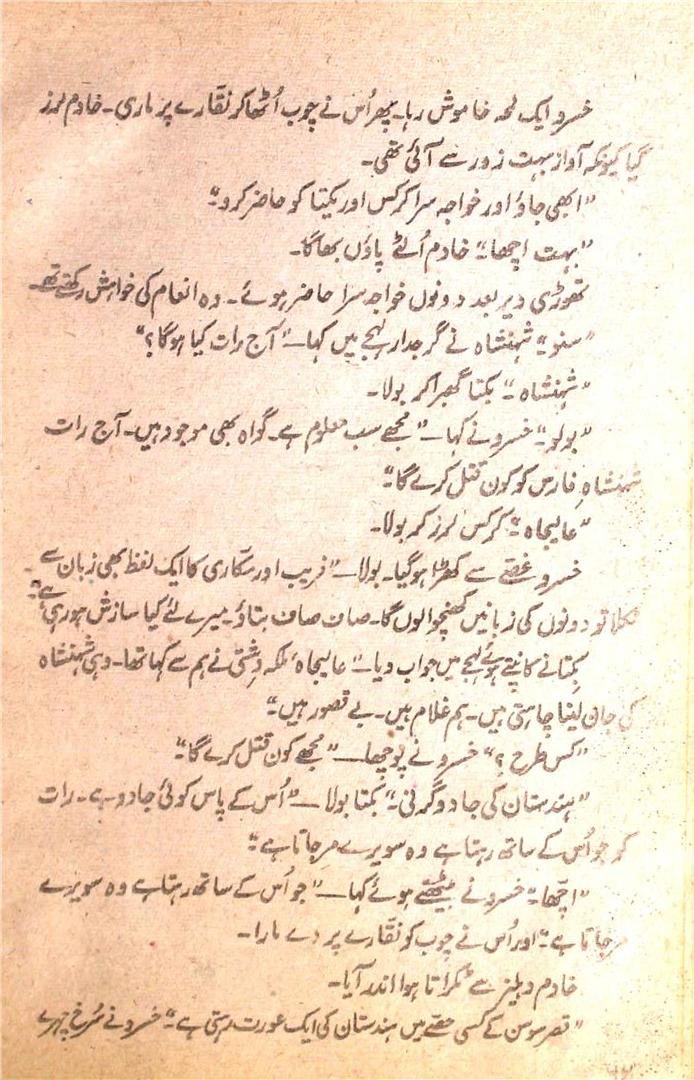 خسرو ایک لمحہ خاموش رہا۔ پھر اُس نے چوب اُٹھا کر نقارے پر ماری۔ خادم لرز
گیا کیونکہ آواز بہت زور سے آئی تھی۔
”ابھی جاؤ اور خواجہ سرا کرکس اور یکتا کو حاضر کرو۔“
”بہت اچھا۔“ خادم اُلٹے پاؤں بھاگا۔
تھوڑی دیر بعد دونوں خواجہ سرا حاضر ہوئے۔ وہ انعام کی خواہش رکھتے تھے۔
”سنو۔“ شہنشاہ نے گرجدار لہجے میں کہا—”آج رات کیا ہوگا؟“
”شہنشاہ۔“ یکتا گھبرا کر بولا۔
”بولو۔“ خسرو نے کہا—”مجھے سب معلوم ہے۔ گواہ بھی موجود ہیں۔ آج رات
شہنشاہِ فارس کو کون قتل کرے گا۔“
”عالیجاہ۔“ کرکس لرز کر بولا۔
خسرو غصے سے کھڑا ہوگیا۔ بولا—”فریب اور مکاری کا ایک لفظ بھی زبان سے
نکلا تو دونوں کی زبانیں کھنچوا لوں گا۔ صاف صاف بتاؤ۔ میرے لئے کیا سازش ہو رہی ہے۔“
یکتا نے کانپتے ہوئے لہجے میں جواب دیا—”عالیجاہ ملکہ دشتی نے ہم سے کہا تھا۔ وہی شہنشاہ
کی جان لینا چاہتی ہیں۔ ہم غلام ہیں۔ بے قصور ہیں۔“
”کس طرح؟“ خسرو نے پوچھا—”مجھے کون قتل کرے گا۔“
”ہندستان کی جادوگرنی۔“ یکتا بولا—”اُس کے پاس کوئی جادو ہے۔ رات
کو جو اُس کے ساتھ رہتا ہے وہ سویرے مر جاتا ہے۔“
”اچھا۔“ خسرو نے بیٹھتے ہوئے کہا—”جو اُس کے ساتھ رہتا ہے وہ سویرے
مر جاتا ہے۔“ اور اُس نے چوب کو نقارے پر دے مارا۔
خادم دہلیز سے ٹکراتا ہوا اندر آیا۔
”قصر سوسن کے کسی حصے میں ہندستان کی ایک عورت رہتی ہے۔“ خسرو نے سُرخ چہرے